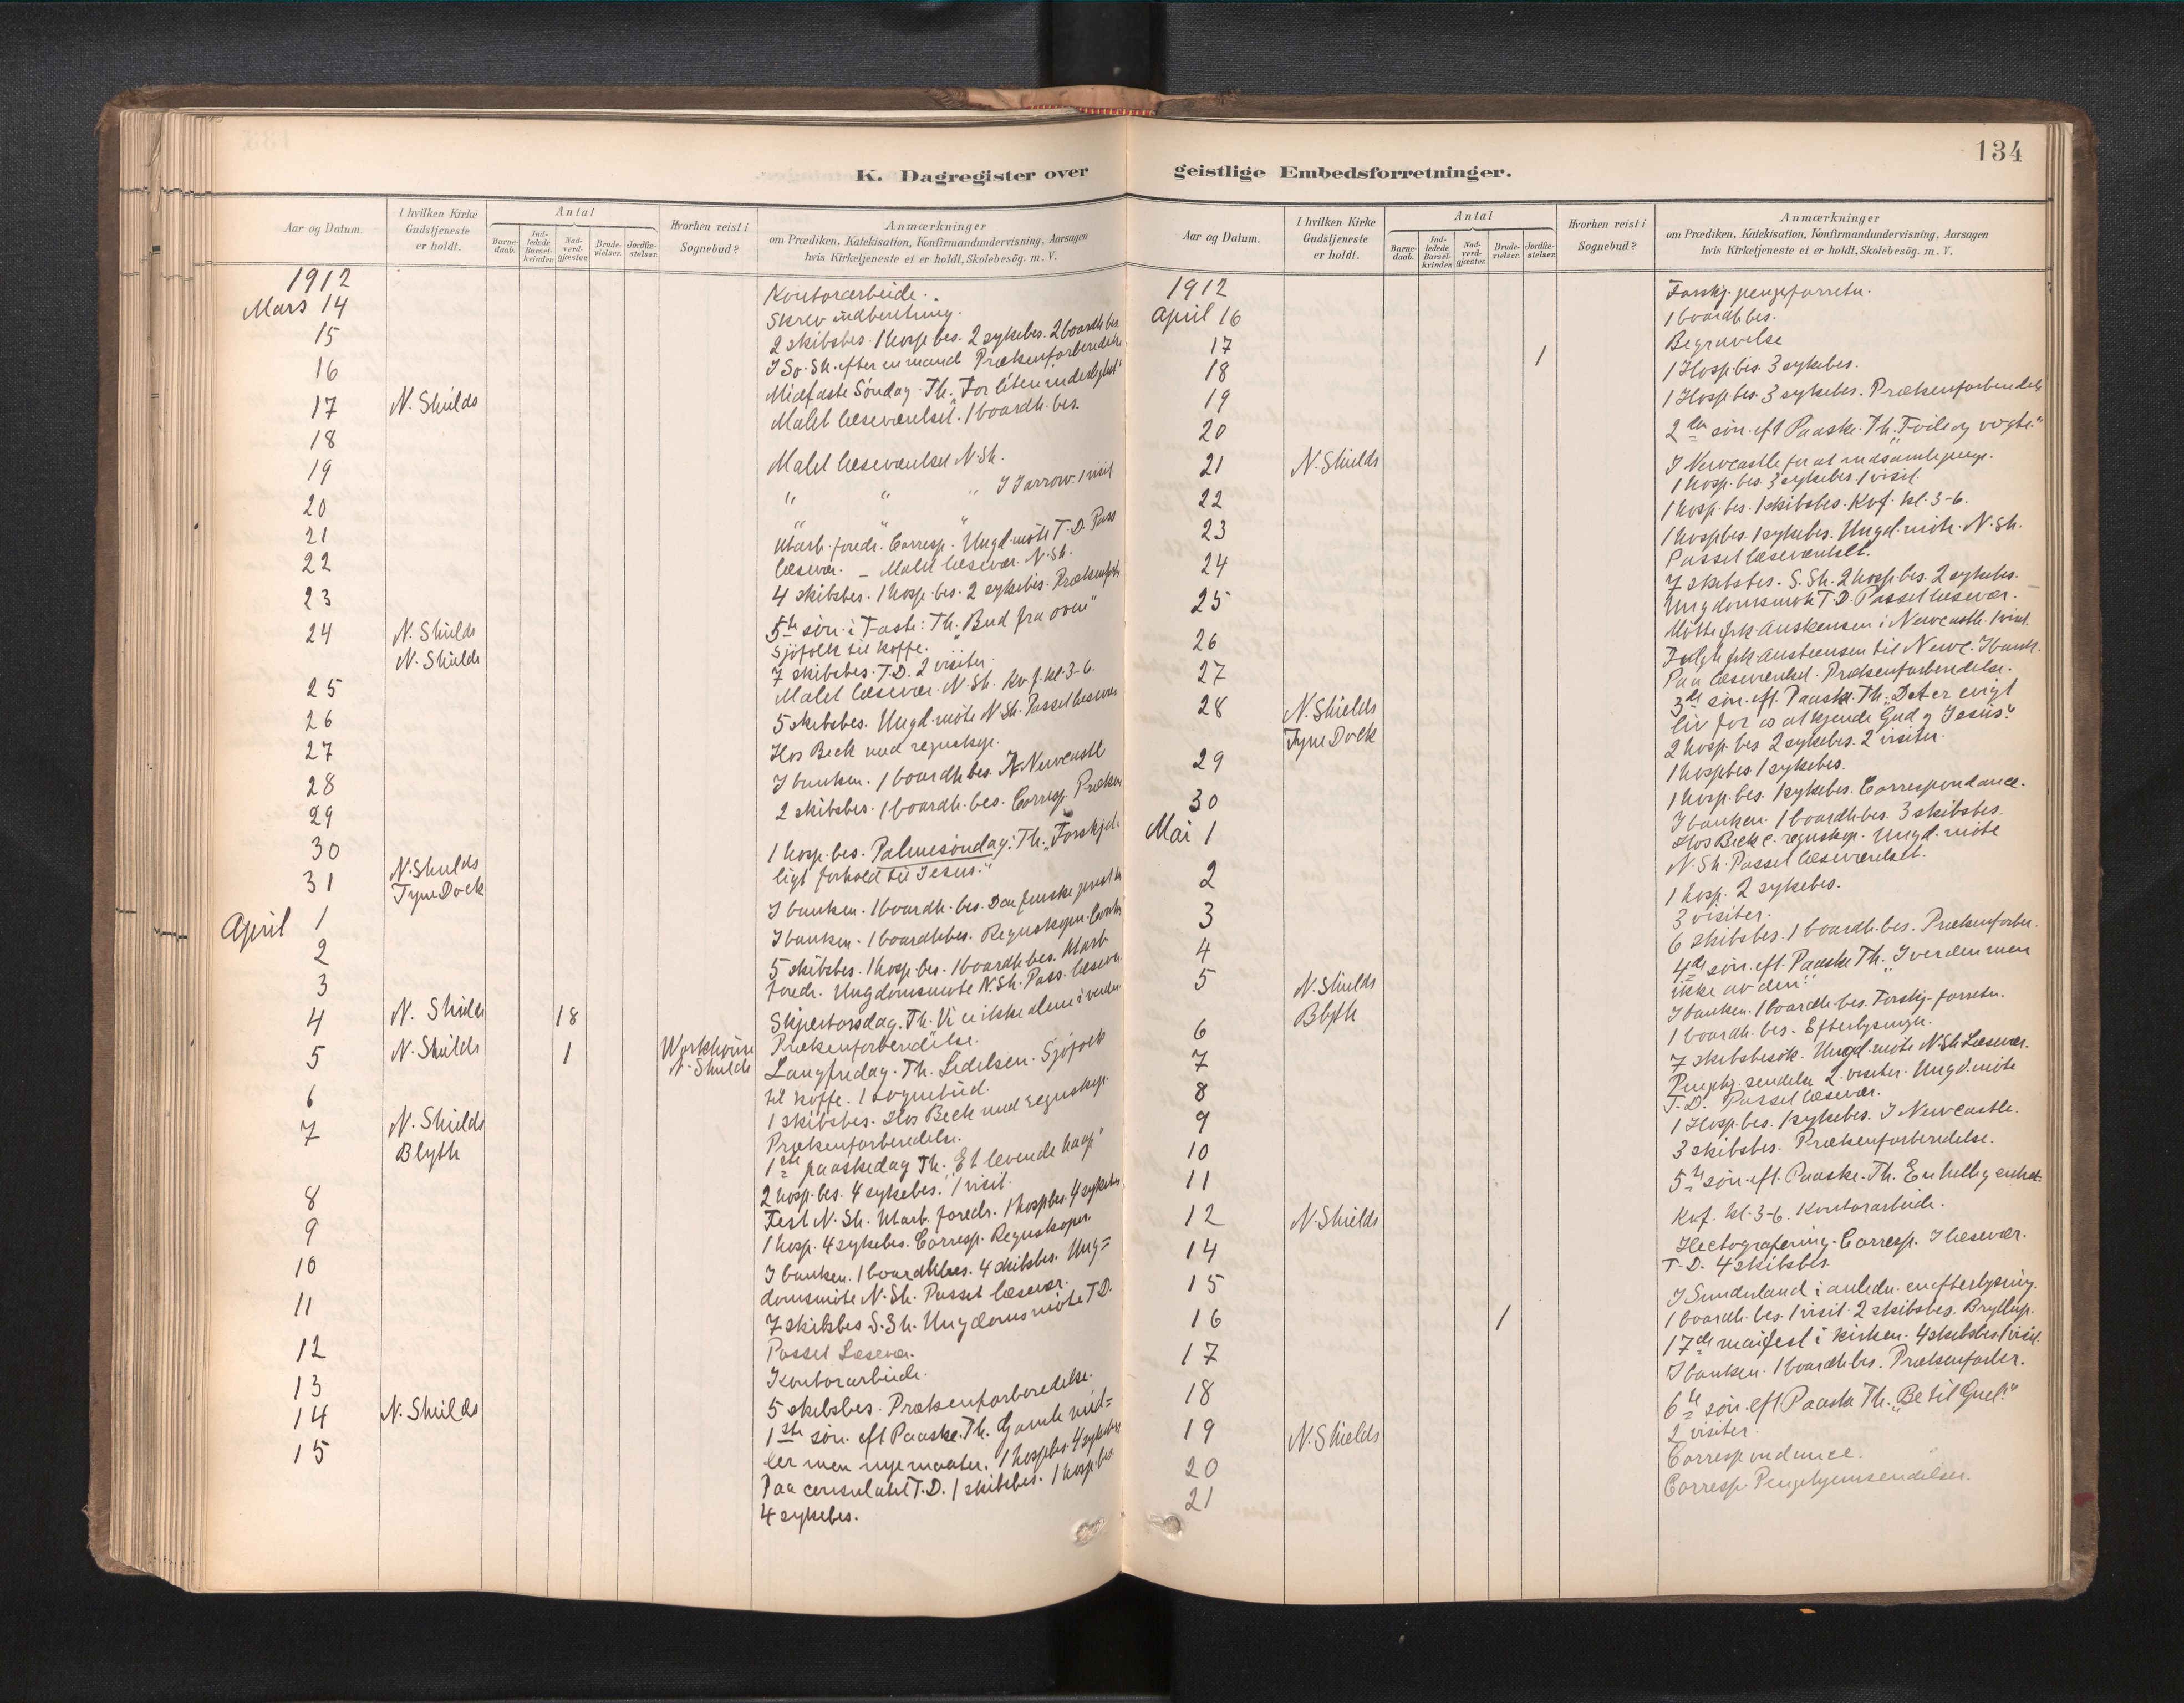 134
K. Dagregister over geistlige Embedsforretninger.
Aar og Datum.
I hvilken Kirke Gudstjeneste er holdt.
Antal
Barnedaab.
Indledede Barselkvinder.
Nadverdgjæster.
Brudevielser.
Jordfæstelser.
Hvorhen reist i Sognebud?
Anmærkninger
om Prædiken, Katekisation, Konfirmandundervisning, Aarsagen
hvis Kirketjeneste ei er holdt, Skolebesög. m. V.
1912
Kontorarbeide.
Mars 14
Skrev indberetning.
15
2 skibsbes. 1 hosp. bes. 2 sykebes. 2 boardh. bes.
16
I So. Sh. efter en mand Prækenforberedelse
17 N. Shields
Midfaste Söndag. Th.
Malet læseværelset. 1 boardh. bes.
18
Malet læseværelset N. Sh.
19
" " " I Jarrow. 1 visit
20
" " "
21
Utarb. foredr. Corresp. Ungd. möte T. D. Pass
22
læsevær. – Malet læsevær. N. Sh.
23
4 skibsbes. 1 hosp. bes. 2 sykebes.
24 N. Shields
5te sön. i Faste: Th. "Bud fra oven"
N. Shields
sjöfolk til kaffe.
25
7 skibsbes. T. D. 2 visiter.
Malet læsevær. N. Sh. Kvf. kl. 3-6.
26
5 skibsbes. Ungd. möte N. Sh. Passet læsevær
27
Hos Beck med regnskap.
28
I banken. 1 boardh. bes. Newcastle
29
2 skibsbes. 1 boardh. bes. Corresp. Præken
30
1 hosp. bes. Palmesöndag: Th. "Forskjel-
31 N. Shields
ligt forhold til Jesus."
Tyne Dock
April 1
I banken. 1 boardh. bes. Den finske prest
2
I banken. 1 boardh. bes. Regnskapn.
3
5 skibsbes. 1 hosp. bes. 1 boardh. bes. Utarb.
foredr. Ungdomsmöte N. Sh. Pass. læsevær.
4 N. Shields 18
Skjærtorsdag. Th. Vi er ikke alene i verden
Prækenforberedelse.
5 N. Shields 1 Workhouse
N. Shields
Langfredag. Th. Lidelsen. Sjöfolk
til kaffe. 1 sognebud.
6
1 skibsbes. Hos Beck med regnskap.
Prækenforberedelse.
7 N. Shields
1ste paaskedag Th. "Et levende haap"
Blyth
2 hosp. bes. 4 sykebes. 1 visit.
8
Fest N. Sh. Utarb. foredr. 1 hosp. bes. 4 sykebes
9
1 hosp. 4 sykebes. Corresp. Regnskaper.
10
I banken. 1 boardh. bes. 4 skibsbes. Ung=
domsmöte N. Sh. Passet læsevær.
11
7 skibsbes S. Sh. Ungdomsmöte T D.
Passet Læsevær.
12
Kontorarbeide.
13
5 skibsbes. Prækenforberedelse.
14 N. Shields
1ste sön. eft Paaske. Th. Gamle mid=
ler men nye maater. 1 hosp. bes. 4 sykebes
15
Paa consulatet T. D. 1 skibsbes. 1 hosp. bes.
4 sykebes.
Aar og Datum.
I hvilken Kirke Gudstjeneste er holdt.
Antal
Barnedaab.
Indledede Barselkvinder.
Nadverdgjæster.
Brudevielser.
Jordfæstelser.
Hvorhen reist i Sognebud?
Anmærkninger
om Prædiken, Katekisation, Konfirmandundervisning, Aarsagen
hvis Kirketjeneste ei er holdt, Skolebesög. m. V.
1912
Forskj. pengeforretn.
April 16
1 boardh. bes.
17 1
Begravelse
18
1 Hosp. bes. 3 sykebes.
19
1 Hosp. bes. 3 sykebes. Prækenforberedels
20
2den sön. eft Paaske. Th.
21 N. Shields
I Newcastle for at indsamle penge.
1 hosp. bes. 3 sykebes. 1 visit.
22
1 hosp. bes. 1 skibsbes. Kvf. kl. 3-6.
23
1 hosp bes. 1 sykebes. Ungd. möte. N. Sh.
Passet læseværelset.
24
7 skibsbes. S. Sh. 2 hosp. bes. 2 sykebes.
25
Ungdomsmöte T. D. Passet læsevær.
26
Mötte frk i Newcastle. 1 visit.
27
Fulgte frk til Newc. I bank.
Paa læseværelset. Prækenforberedelse.
28 N. Shields
3de sön. eft. Paaske. Th. "Det er evigt
Tyne Dock
liv for os at kjende Gud og Jesus."
29
2 hosp. bes 2 sykebes. 2 visiter.
1 hosp bes. 1 sykebes.
30
1 hosp. bes. 1 sykebes. Correspondance.
Mai 1
I banken. 1 boardh. bes. 3 skibsbes.
Hos Beck regnskap. Ungd. möte
N. Sh. Passet læseværelset.
2
1 hosp. 2 sykebes.
3
3 visiter.
4
6 skibsbes. 1 boardh. bes. Prækenforber.
5 N. Shields
4de sön. eft. Paaske Th. "I verden men
Blyth
ikke av den"
6
I banken. 1 boardh. bes. Forskj. forretn.
7
1 boardh. bes. Efterlysninger.
8
7 skibsbesök. Ungd. möte N. Sh. Læsevær.
9
2 visiter. Ungd. möte
T. D. Passet læsevær.
10
1 Hosp. bes. 1 sykebes. I Newcastle.
11
3 skibsbes. Prækenforberedelse.
12 N. Shields
5te sön. eft. Paaske. Th. En hellig enhet.
14
Kvf. kl. 3-6. Kontorarbeide.
15
Hectografering. Corresp. I læsevær.
T. D. 4 skibsbes.
16 1
I Sunderland i anledn. en efterlysning.
1 boardh. bes. 1 visit. 2 skibsbes. Bryllup.
17
17de maifest i kirken. 4 skibsbes. 1 visit.
18
I banken. 1 boardh. bes. Prækenforber.
19 N. Shields
6te sön. eft Paaske Th. "Be til Gud!"
2 visiter.
20
Correspondance.
21
Corresp. Pengehjemsendelser.